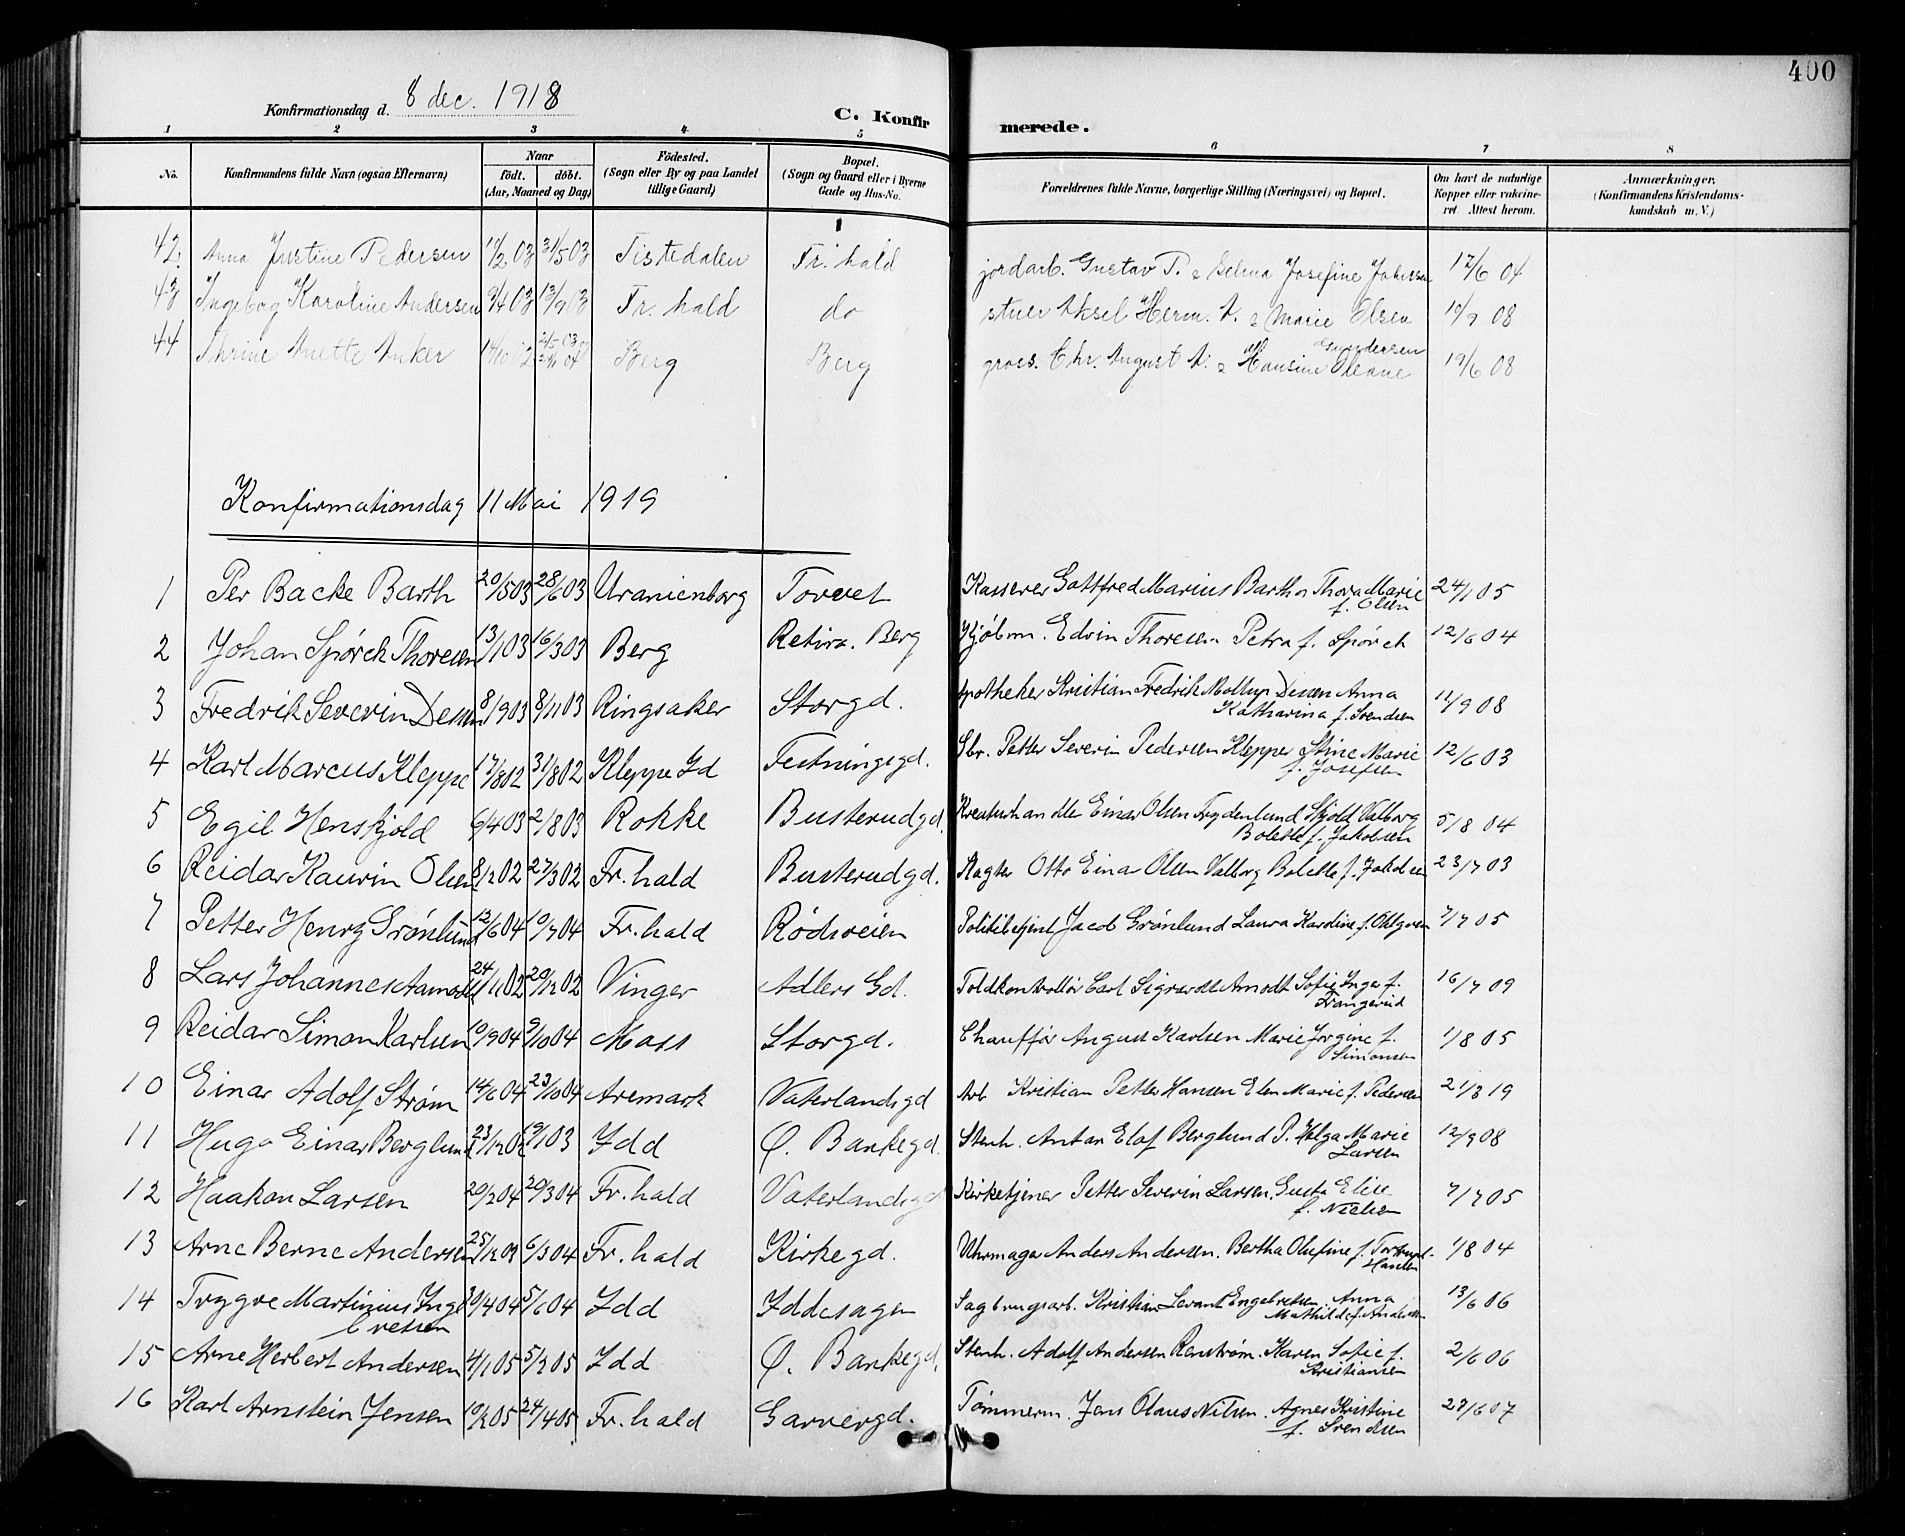 400
Konfirmationsdag d. 8 dec. 1918
C. Konfirmerede.
1 2 3 4 5 6 7 8
No. | Konfirmandens fulde Navn (ogsaa Efternavn) | Naar födt. döbt. (Aar, Maaned og Dag) | Födested. (Sogn eller By og paa Landet tillige Gaard) | Bopæl. (Sogn og Gaard eller i Byerne Gade og Hus-No. | Forældrenes fulde Navne, borgerlige Stilling (Næringsvei) og Bopæl. | Om havt de naturlige Kopper eller vakcineret Attest herom. | Anmærkninger, (Konfirmandens Kristendomskundskab m. V.)
42 Anna Justine Pedersen 31/5 03 Tistedalen Fr. hald jordarb. Gustav P. & Selma Josefine 17/6 04
43 Ingeborg Karoline Andersen 9/4 03 13/9 03 Fr. hald do stuer Aksel Herm. A. & Marie Olsen 10/9 08
44 Thrine Anette Anker Berg Berg gross. Chr. August A. & Hansine Oleane Gundersen 19/6 08
Konfirmationsdag 11 Mai 1919
1 Per Backe Barth 20/5 03 28/6 03 Uranienborg Torvet Kasserer Gottfred Marius Barth o Thora Marie f. Olsen 24/1 05
2 Johan Spørck Thoresen 13/1 03 16/3 03 Berg Retira. Berg Kjøbm. Edvin Thoresen Petra f. Spørck 12/6 04
3 Fredrik Severin Dessen 8/9 03 8/11 03 Ringsaker Storgd. Apotheker Kristian Fredrik Moltrup Dessen Anna Katharina f. Svendsen 11/9 08
4 Karl Marcus Kleppe 17/8 02 31/8 02 Kleppe Id Festningsgd. Sbr. Petter Severin Pedersen Kleppe Stine Marie f. Josefsen 12/6 03
5 Egil Henskjold 6/4 03 2/8 03 Rokke Busterudgd. Kreaturhandler Einar Olsen Frydenlund Skjold Valborg Bolette f. Jakobsen 5/8 04
6 Reidar Kaurin Olsen 8/2 02 27/3 02 Fr. hald Busterudgd. Slagter Otto Einar Olsen Valborg Bolette f. Jakobsen 23/7 03
7 Petter Henry Grønlund 12/6 04 10/7 04 Fr. hald Rødsveien Politibetjent Jacob Grønlund Laura Karoline f. Ohlgren 7/7 05
8 Lars Johannes Aamodt 24/11 02 20/12 02 Vinger Adlers Gd. Toldkontrollør Carl Sigvardt Amodt Sofie Inga f. Trangerud 16/7 09
9 Reidar Simon Karlsen 10/9 04 9/10 04 Moss Storgd. Chauffør August Karlsen Marie Jorgine f. Simonsen 1/8 05
10 Einar Adolf Strøm 14/6 04 23/10 04 Aremark Vaterlandsgd Arb Kristian Petter Hansen Elen Marie f. Pedersen 21/3 19
11 Hugo Einar Berglund 23/12 02 Idd Ø. Bankegd. Stenh. Anton Elof Berglund P. Helga Marie Larsen 12/9 08
12 Haakon Larsen 20/2 04 20/3 04 Fr. hald Vaterlandsgd Kirketjener Petter Severin Larsen. Gusta Elise f. Nielsen 7/7 05
13 Arne Berne Andersen 6/3 04 Fr. hald Kirkegd. Uhrmager Anders Andersen. Bertha Olufine f. Hansen 1/8 04
14 Trygve Martinius Ingebretsen 5/6 04 Idd Iddesagen Sagbrugsarb. Kristian Levant Engebretsen Anna Mathilde f. Andersen 13/6 06
15 Arne Herbert Andersen 4/1 05 5/2 05 Idd Ø. Bankegd. Stenh. Adolf Andersen Renstrøm. Karen Sofie f. Kristiansen 2/6 06
16 Karl Arnstein Jensen 10/2 05 24/4 05 Fr. hald Garvergd. Tømmerm. Jens Olaus Nilsen. Agnes Kristine f. Svendsen 27/6 07